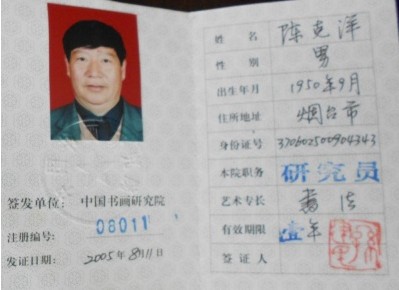 签发单位：中国书画研究院
注册编号：08011
发证日期：2005年8月11日
姓名 陈克洋
性别 男
出生年月 1950年9月
住所地址 烟台市
身份证号 370602500904343
本院职务 研究员
艺术专长 书法
有效期限 壹年
签证人